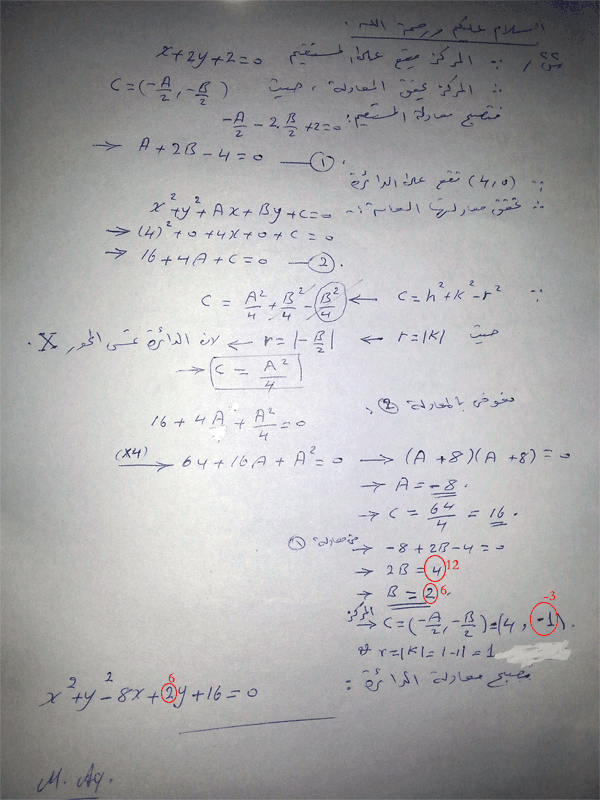 السلام عليكم ورحمة الله.
س٢٢/ ∵ المركز يقع على المستقيم x+2y+2=0
∴ المركز يحقق المعادلة، حيث C=(-A/2, -B/2)
فتصبح معادلة المستقيم: -A/2 - 2.B/2 + 2 = 0
→ A + 2B - 4 = 0 —(1).
∵ (4,0) تقع على الدائرة
∴ تحقق معادلتها العامة:- x²+y²+Ax+By+C=0
→ (4)²+0+4x+0+C=0
→ 16+4A+C=0 —(2).
∵ C=h²+k²-r² ← C = A²/4 + B²/4 - B²/4
حيث r=|k| ← r=|-B/2| ← لان الدائرة تمس المحور X.
→ C = A²/4
نعوض بالمعادلة (2):
16 + 4A + A²/4 = 0
(x4) → 64+16A+A²=0 → (A+8)(A+8)=0
→ A = -8.
→ C = 64/4 = 16.
من معادلة (1) → -8 + 2B - 4 = 0
→ 2B = 4 12
→ B = 2 6
-3
المركز → C=(-A/2, -B/2)=(4, -1).
r=|k|=|-1|=1
فتصبح معادلة الدائرة:
6
x²+y²-8x+2y+16=0
M. Aq.